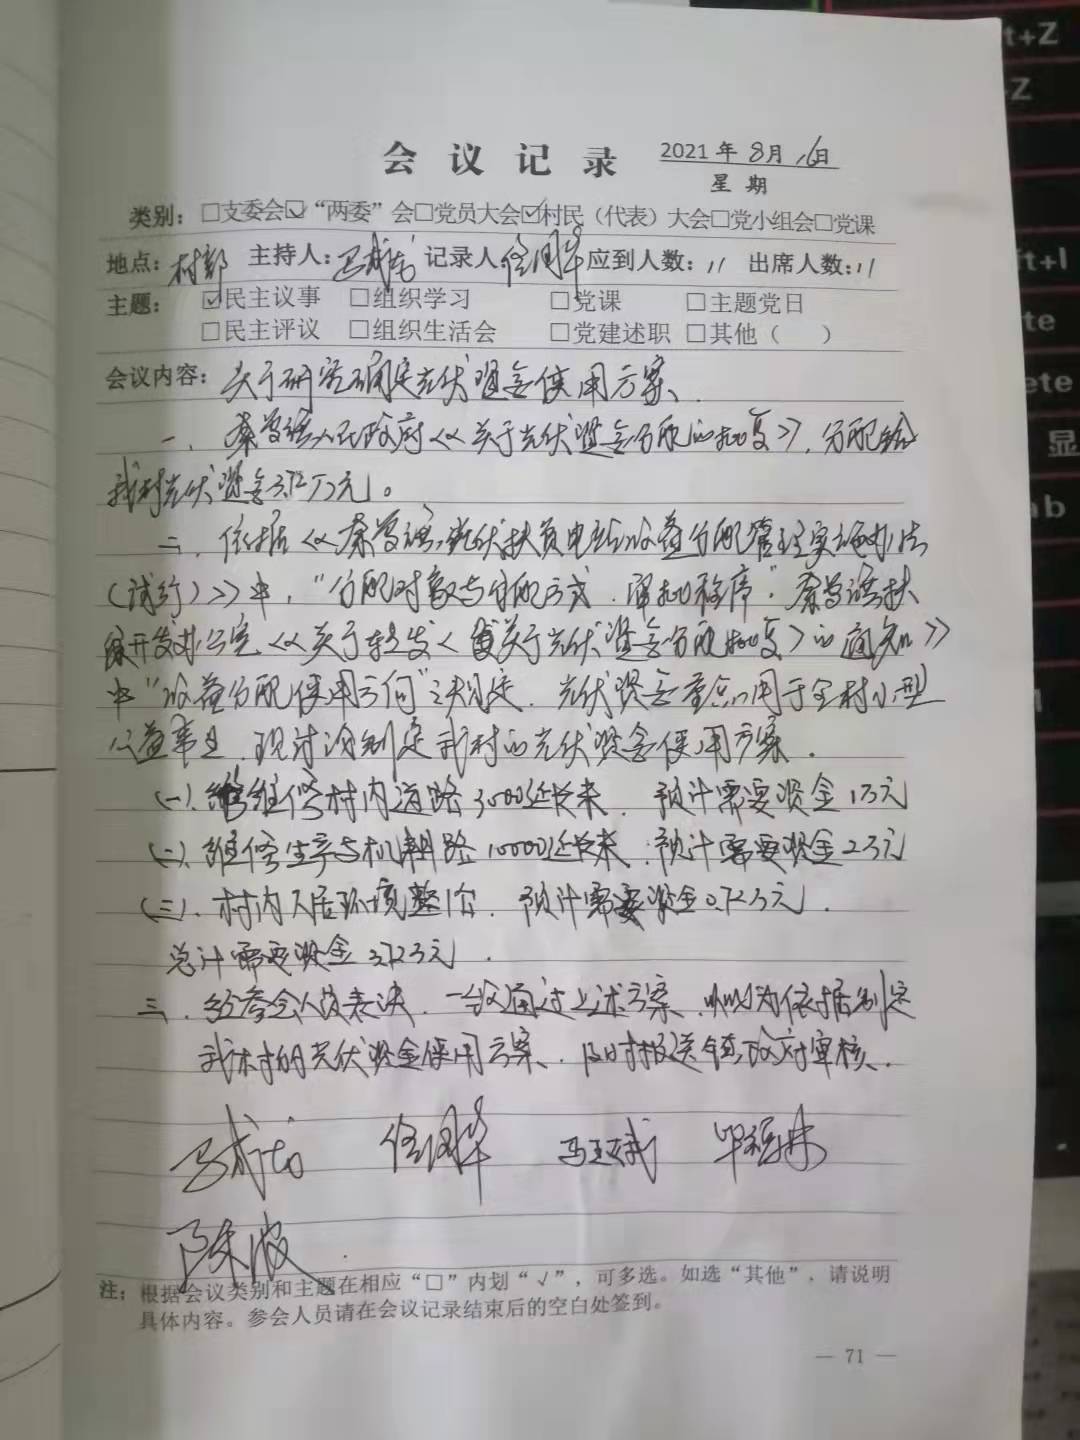 会议记录 2021年8月16日
星期
类别：□支委会☑“两委”会□党员大会☑村民（代表）大会□党小组会□党课
地点：村部 主持人： 记录人： 应到人数：11 出席人数：11
主题：☑民主议事 □组织学习 □党课 □主题党日
□民主评议 □组织生活会 □党建述职 □其他（ ）
会议内容：关于研究确定光伏资金使用方案、
一、秦安县人民政府《关于光伏资金分配的批复》，分配给
我村光伏资金3.72万元。
二、依据《秦安县光伏扶贫电站收益分配管理实施办法
（试行）》中，“分配对象与分配方式、审批程序”秦安县扶
贫开发办公室《关于转发<关于光伏资金分配批复>的通知》
中“收益分配使用方向”之规定，光伏资金重点用于全村小型
公益事业，现讨论制定我村的光伏资金使用方案．
（一）、维修村内道路3000延长米，预计需要资金1万元
（二）、维修生产与机耕路10000延长米，预计需要资金2万元
（三）、村内人居环境整治，预计需要资金0.72万元．
总计需要资金3.72万元．
三、经参会人员表决，一致通过上述方案，以此为依据制定
我村的光伏资金使用方案、及时报送镇政府审核．
陈波
注：根据会议类别和主题在相应“□”内划“√”，可多选。如选“其他”，请说明
具体内容。参会人员请在会议记录结束后的空白处签到。
— 71 —
t+Z
-Z
ft+I
te
ete
显
ab